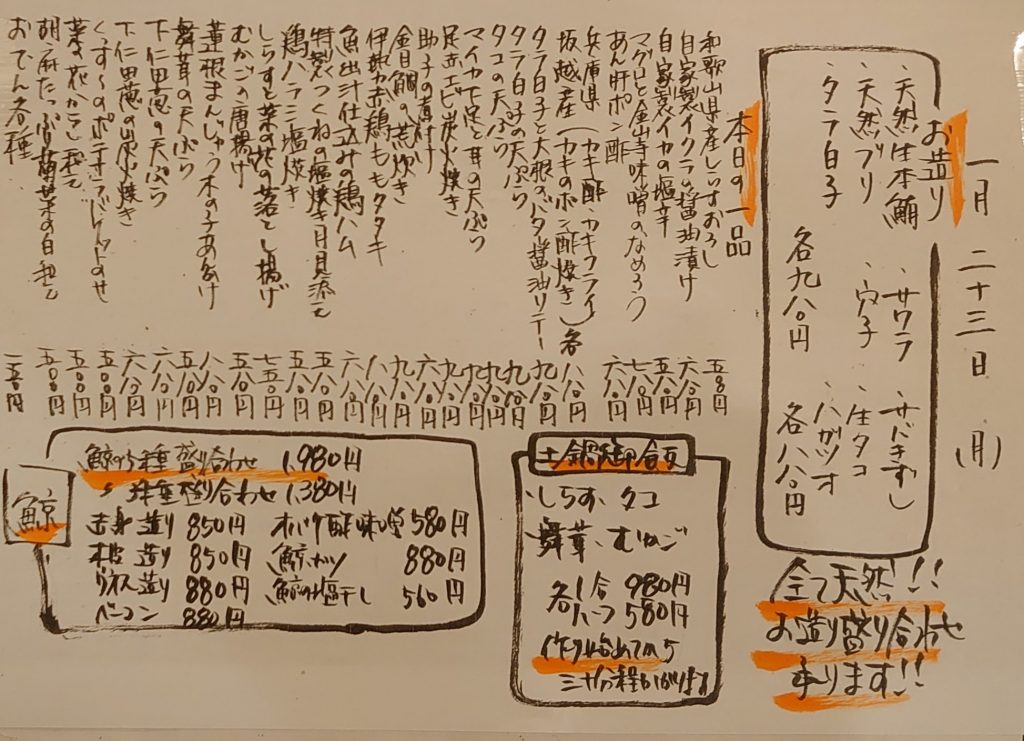 一月二十三日(月)
お造り
・天然生本鮪
・天然ブリ
・タラ白子
・サワラ
・穴子
各九八〇円
・サバきずし
・生タコ
・ハガツオ
各八八〇円
全て天然!!
お造り盛り合わせ
承ります!!
本日の一品
和歌山県産しらすおろし
自家製イクラの醤油漬け
自家製イカの塩辛
マグロと金山寺味噌のなめろう
あん肝ポン酢
兵庫県(カキ酢・カキフライ
坂越産(カキのポン酢焼き)各
タラ白子と大根のバター醤油ソテー
タラ白子の天ぷら
タコの天ぷら
マイカ下足と耳の天ぷら
足赤エビ炭火焼き
助子の煮付け
金目鯛の荒炊き
伊勢赤鶏ももタタキ
魚出汁仕込みの鶏ハム
特製つくねの塩焼き月見添え
鶏ハラミ塩焼き
しらすと菜の花の落とし揚げ
むかごの唐揚げ
蓮根まんじゅう木の子あんかけ
舞茸の天ぷら
下仁田葱の天ぷら
下仁田葱の炭火焼き
くっすのポテトサラダ
菜の花からし和え
胡麻たっぷり菊菜の白和え
おでん各種
五八〇円
六八〇円
五八〇円
七八〇円
六八〇円
八八〇円
九八〇円
九八〇円
九八〇円
六八〇円
九八〇円
八八〇円
六八〇円
五八〇円
五八〇円
七五〇円
五八〇円
八八〇円
五八〇円
六八〇円
五八〇円
五〇〇円
五〇〇円
一五〇円
土鍋御合飯
・しらす・タコ
舞茸・むかご
各1合 980円
各ハーフ 580円
作り始めてから
三十分程かかります
鯨
鯨の5種盛り合わせ 1,980円
〃 3種盛り合わせ 1,380円
赤身造り 850円
本皮造り 850円
ウネス造り 880円
ベーコン 880円
オバケ酢味噌 580円
鯨カツ 880円
鯨の塩干し 560円